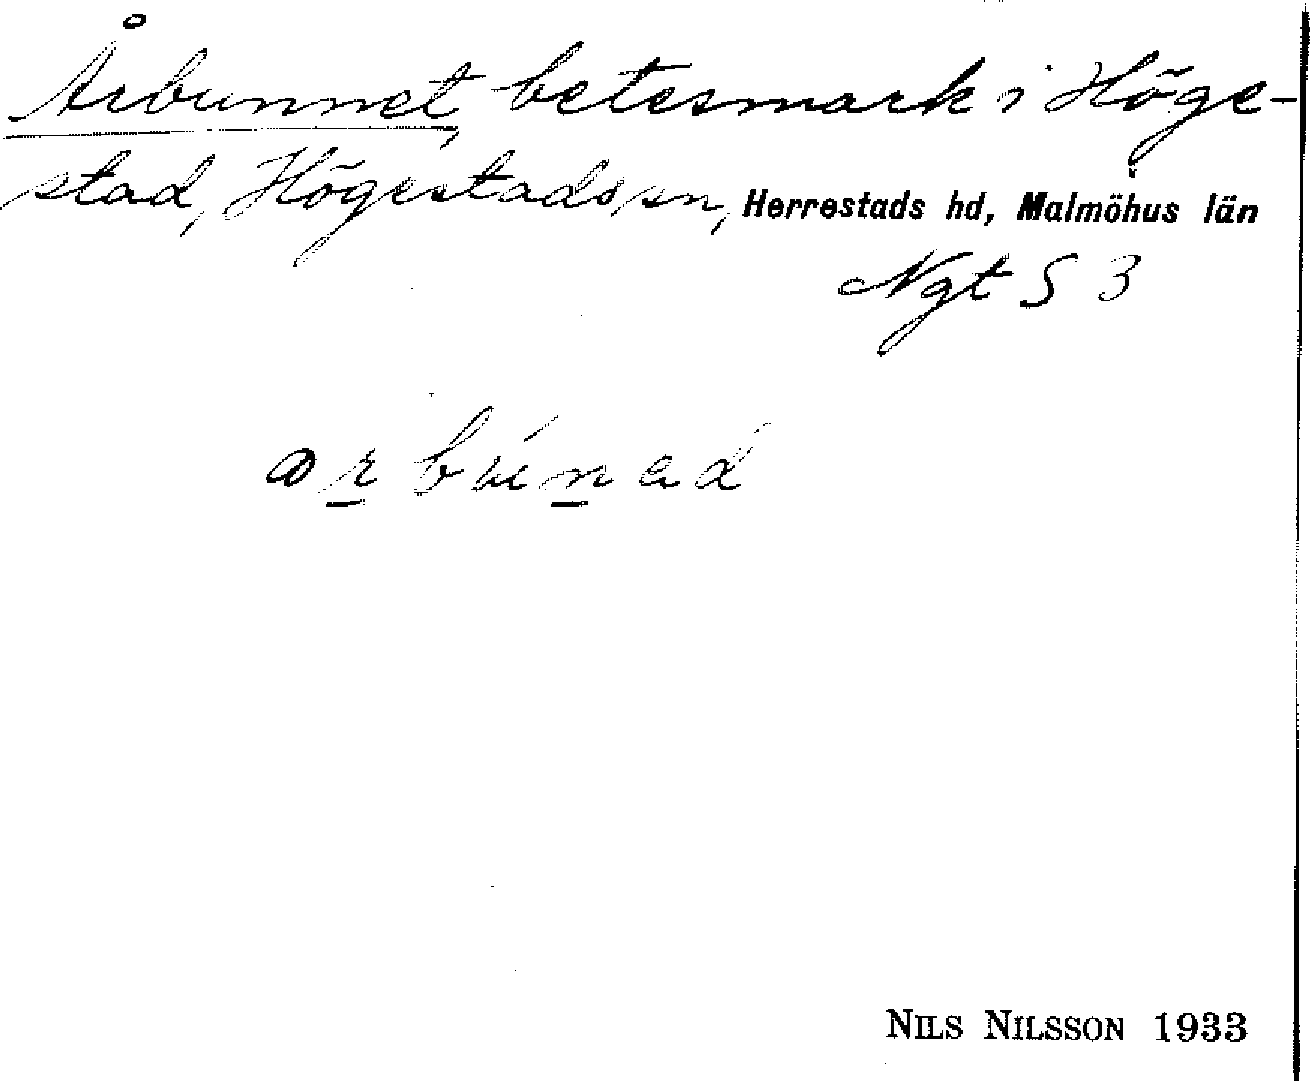 Årbunnet, betesmark i Höge-
stad, Högestads sn, Herrestads hd, Malmöhus län
Ngt S 3
NILS NILSSON 1933